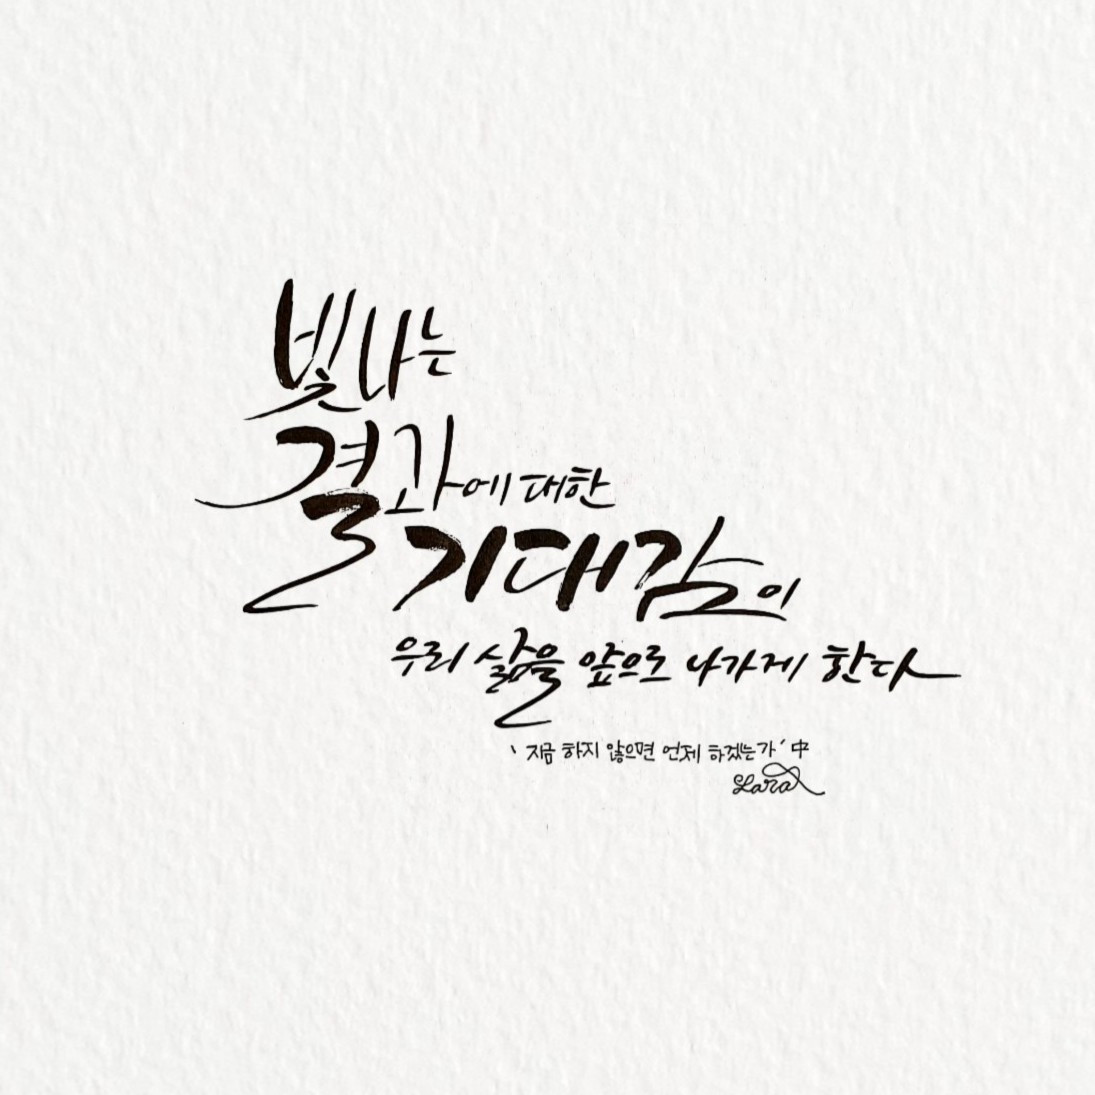 빛나는
결과에 대한
기대감이
우리 삶을 앞으로 나가게 한다
'지금 하지 않으면 언제 하겠는가' 中
Lara